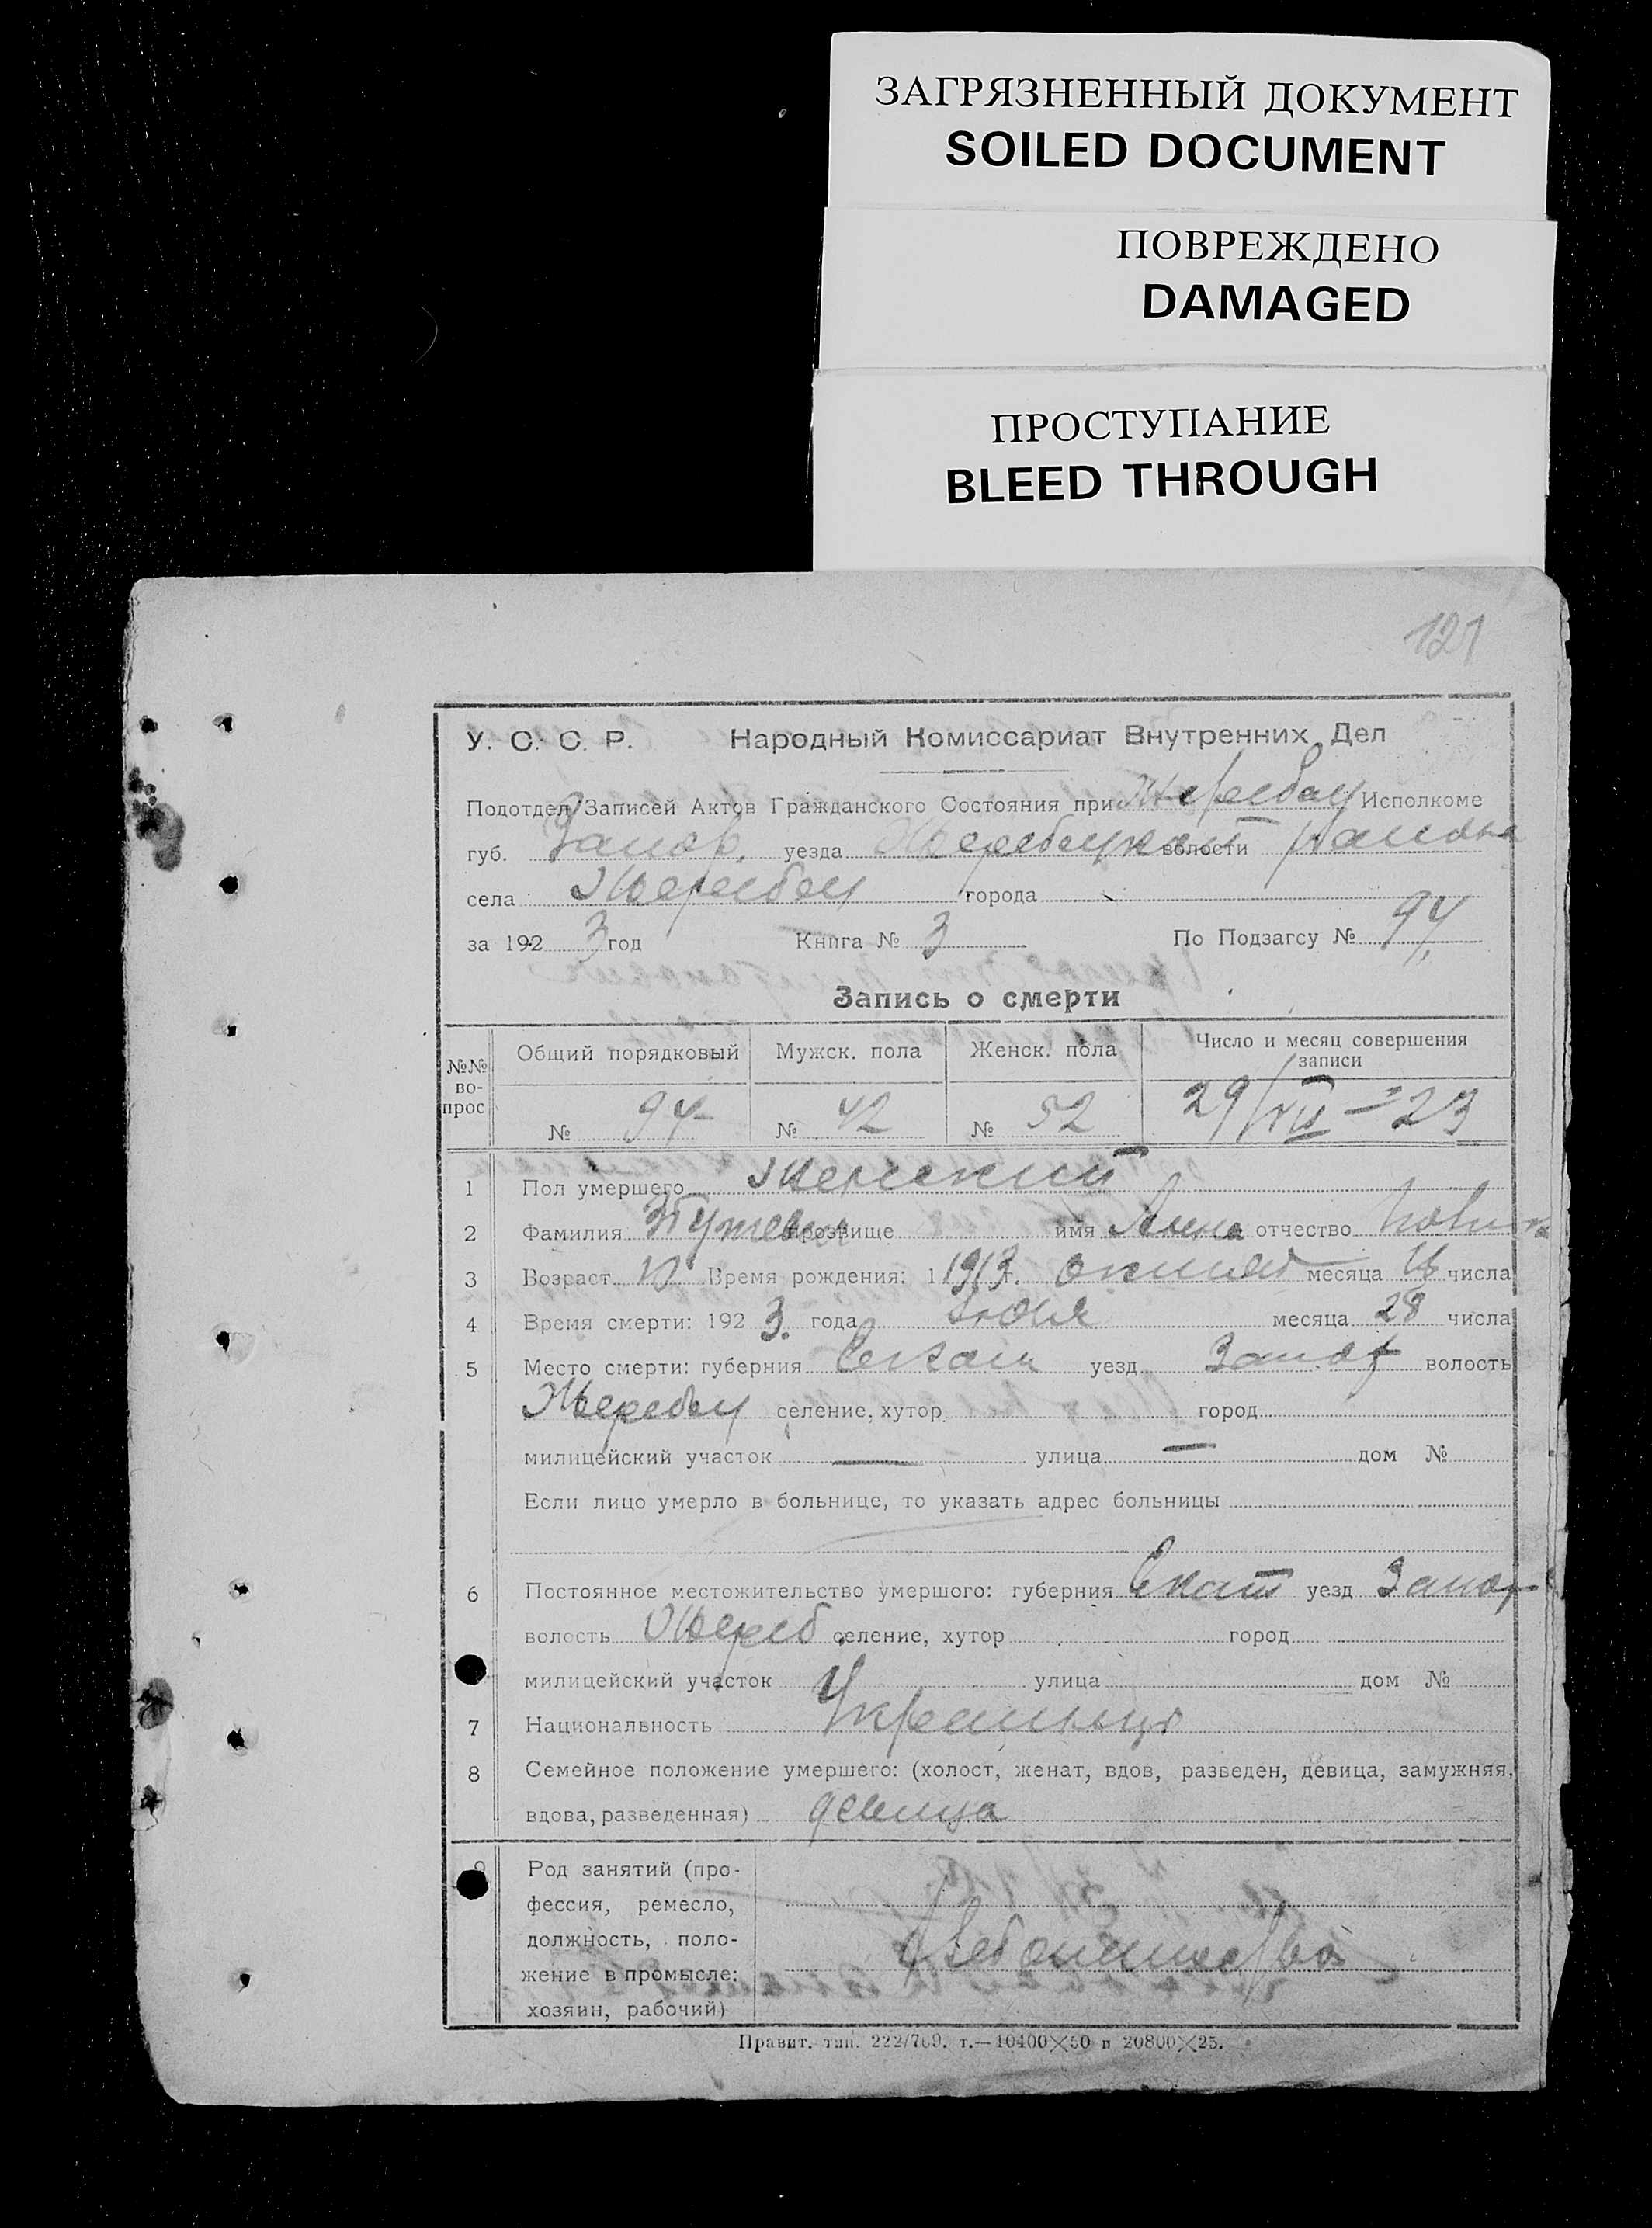 ЗАГРЯЗНЕННЫЙ ДОКУМЕНТ
SOILED DOCUMENT
ПОВРЕЖДЕНО
DAMAGED
ПРОСТУПАНИЕ
BLEED THROUGH
121
У. С. С. Р. Народный Комиссариат Внутренних Дел
Подотдел Записей Актов Гражданского Состояния при Жеребец Исполкоме
губ. Запор. уезда Жеребецкой волости района
села Жеребец города
за 1923 год Книга № 3 По Подзагсу № 94
Запись о смерти
№№ во-прос Общий порядковый Мужск. пола Женск. пола Число и месяц совершения записи
№ 94 № 42 № 52 29/VII–23
1 Пол умершего Женский
2 Фамилия прозвище имя Анна отчество
3 Возраст 10 Время рождения: 1 1913 г. месяца 16 числа
4 Время смерти: 1923. года Июля месяца 28 числа
5 Место смерти: губерния уезд Запор волость
Жеребец селение, хутор город
милицейский участок — улица — дом №
Если лицо умерло в больнице, то указать адрес больницы
6 Постоянное местожительство умершого: губерния Екат уезд Запор
волость Жереб селение, хутор город
милицейский участок улица дом №
7 Национальность
8 Семейное положение умершего: (холост, женат, вдов, разведен, девица, замужняя,
вдова, разведенная) девица
9 Род занятий (про-
фессия, ремесло,
должность, поло-
жение в промысле:
хозяин, рабочий)
Правит. тип. 222/709. т.—10400×50 п 20800×25.